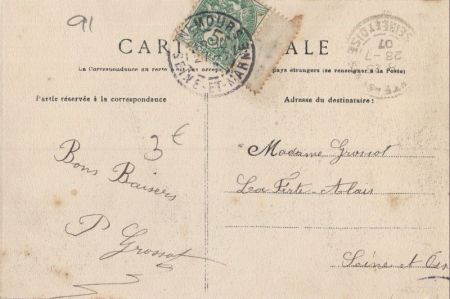 91
NEMOURS
SEINE-ET-MARNE
SEINE ET OISE
28-5
07
CARTE POSTALE
La Correspondance au recto
pays étrangers (se renseigner à la Poste)
Partie réservée à la correspondance
Adresse du destinataire:
3€
Bons Baisers
P Grossot
Madame Grossot
La Ferté-Alais
Seine et Ois